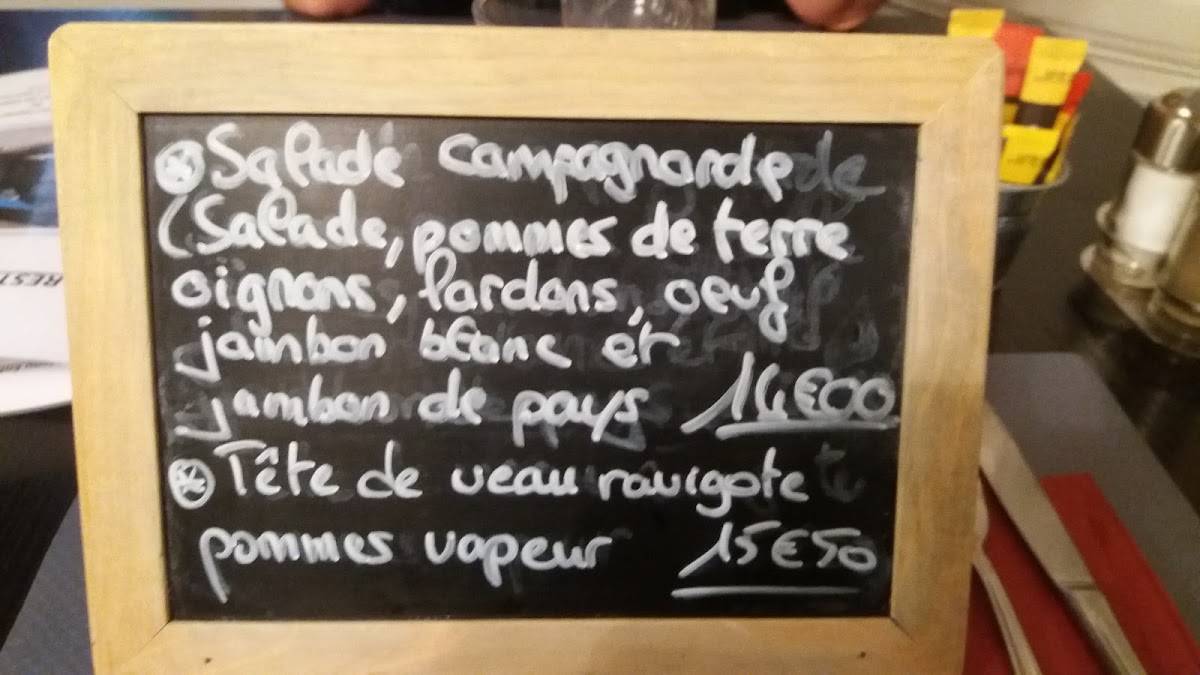 Salade Campagnarde
(Salade, pommes de terre
oignons, lardons, oeuf
jambon blanc et
jambon de pays 14€00
Tête de veau ravigote
pommes vapeur 15€50
REST